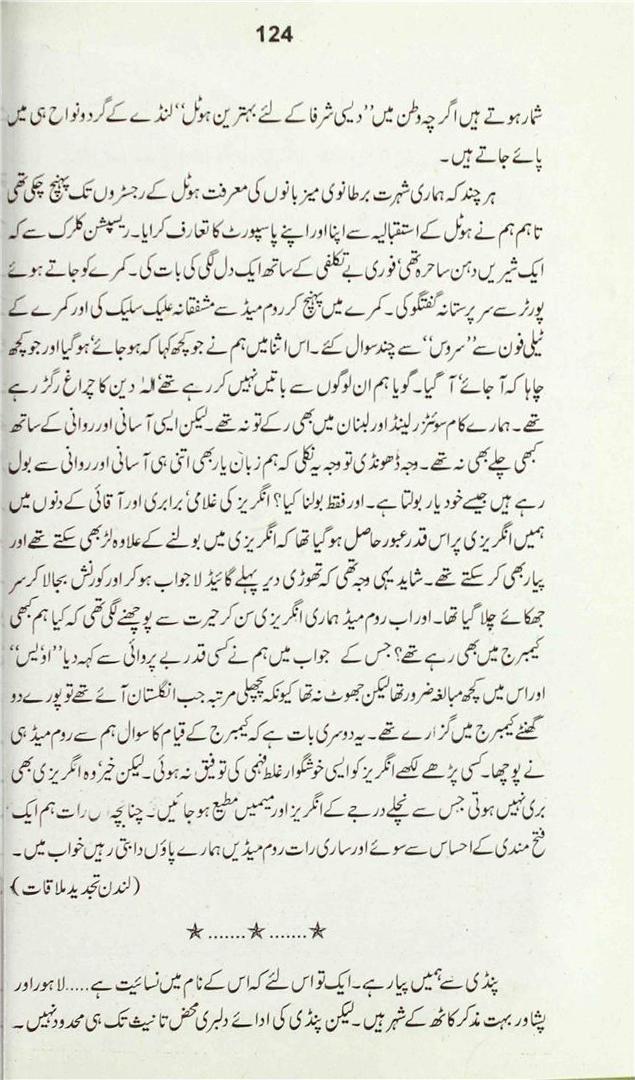 124
شمار ہوتے ہیں اگرچہ وطن میں ’’دیسی شرفا کے لئے بہترین ہوٹل‘‘ لنڈے کے گردونواح ہی میں
پائے جاتے ہیں۔
ہرچند کہ ہماری شہرت برطانوی میزبانوں کی معرفت ہوٹل کے رجسٹروں تک پہنچ چکی تھی
تاہم ہم نے ہوٹل کے استقبالیہ سے اپنا اور اپنے پاسپورٹ کا تعارف کرایا۔ ریسپشن کلرک سے کہ
ایک شیریں دہن ساحرہ تھی‘ فوری بے تکلفی کے ساتھ ایک دل لگی کی بات کی۔ کمرے کو جاتے ہوئے
پورٹر سے سرپرستانہ گفتگو کی۔ کمرے میں پہنچ کر روم میڈ سے مشفقانہ علیک سلیک کی اور کمرے کے
ٹیلی فون سے ’’سروس‘‘ سے چند سوال کئے۔ اس اثنا میں ہم نے جو کچھ کہا کہ ہو جائے‘ ہو گیا اور جو کچھ
چاہا کہ آ جائے‘ آ گیا۔ گویا ہم ان لوگوں سے باتیں نہیں کر رہے تھے‘ الہٰ دین کا چراغ رگڑ رہے
تھے۔ ہمارے کام سوئٹزرلینڈ اور لبنان میں بھی رکے تو نہ تھے۔ لیکن ایسی آسانی اور روانی کے ساتھ
کبھی چلے بھی نہ تھے۔ وجہ ڈھونڈی تو وجہ یہ نکلی کہ ہم زبان یار بھی اتنی ہی آسانی اور روانی سے بول
رہے ہیں جیسے خود یار بولتا ہے۔ اور فقط بولنا کیا؟ انگریز کی غلامی‘ برابری اور آقائی کے دنوں میں
ہمیں انگریزی پر اس قدر عبور حاصل ہو گیا تھا کہ انگریزی میں بولنے کے علاوہ لڑ بھی سکتے تھے اور
پیار بھی کر سکتے تھے۔ شاید یہی وجہ تھی کہ تھوڑی دیر پہلے گائیڈ لاجواب ہو کر اور کورنش بجا لا کر سر
جھکائے چلا گیا تھا۔ اور اب روم میڈ ہماری انگریزی سن کر حیرت سے پوچھنے لگی تھی کہ کیا ہم کبھی
کیمبرج میں بھی رہے تھے؟ جس کے جواب میں ہم نے کسی قدر بے پروائی سے کہہ دیا ’’اوٗیس‘‘
اور اس میں کچھ مبالغہ ضرور تھا لیکن جھوٹ نہ تھا کیونکہ پچھلی مرتبہ جب انگلستان آئے تھے تو پورے دو
گھنٹے کیمبرج میں گزارے تھے۔ یہ دوسری بات ہے کہ کیمبرج کے قیام کا سوال ہم سے روم میڈ ہی
نے پوچھا۔ کسی پڑھے لکھے انگریز کو ایسی خوشگوار غلط فہمی کی توفیق نہ ہوئی۔ لیکن خیر‘ وہ انگریزی بھی
بری نہیں ہوتی جس سے نچلے درجے کے انگریز اور میمیں مطیع ہو جائیں۔ چنانچہ رات ہم ایک
فتح مندی کے احساس سے سوئے اور ساری رات روم میڈیں ہمارے پاؤں دابتی رہیں خواب میں۔
(لندن تجدید ملاقات)
★.......★.......★
پنڈی سے ہمیں پیار ہے۔ ایک تو اس لئے کہ اس کے نام میں نسائیت ہے.....لاہور اور
پشاور بہت مذکر کاٹھ کے شہر ہیں۔ لیکن پنڈی کی ادائے دلبری محض تانیث تک ہی محدود نہیں۔